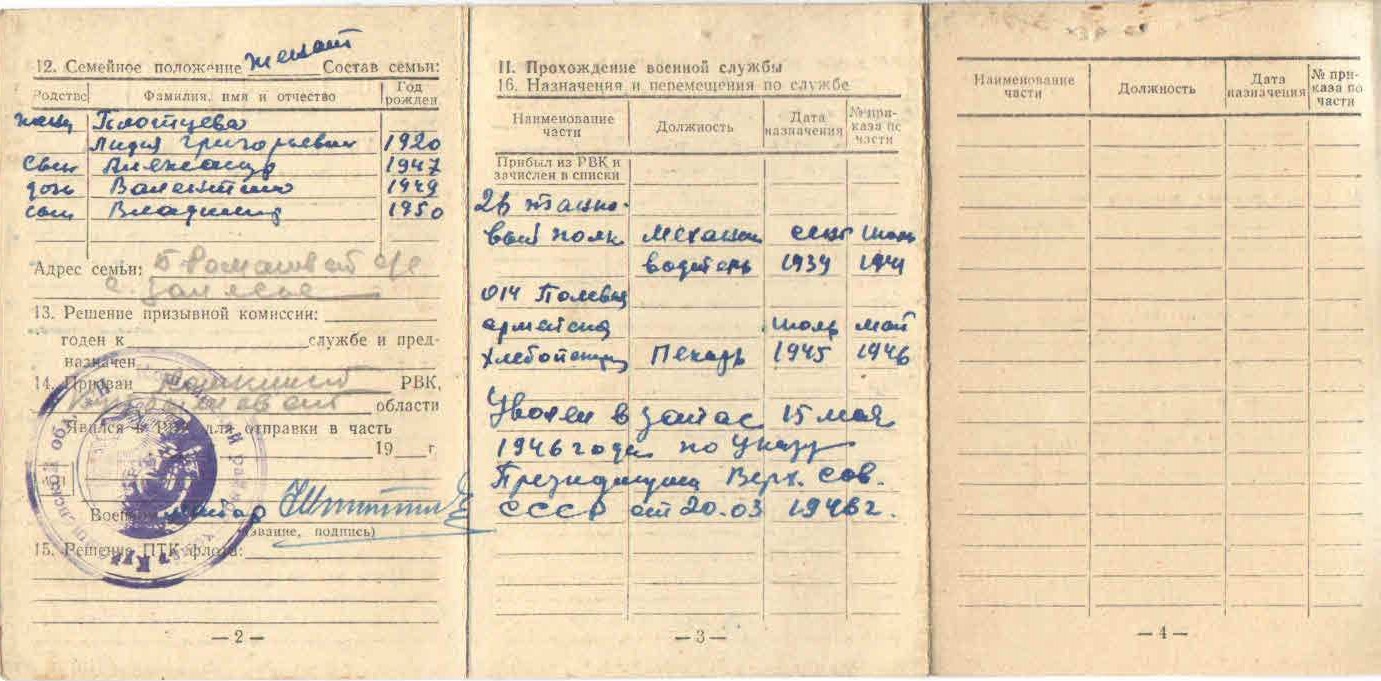 12. Семейное положение женат Состав семьи:
Родство Фамилия, имя и отчество Год рожден
жена Плотцева
Лидия Григорьевна 1920
сын Александр 1947
дочь Валентина 1949
сын Владимир 1950
Адрес семьи:
с.
13. Решение призывной комиссии:
годен к службе и пред-
назначен
14. Призван РВК,
области
Явился в РВК для отправки в часть
19 г.
майор
(звание, подпись)
15. Решение ПТК флота:
— 2 —
II. Прохождение военной службы
16. Назначения и перемещения по службе
Наименование части Должность Дата назначения № при-каза по части
Прибыл из РВК и
зачислен в списки
26 танко-
вый полк механик сент июль
водитель 1939 1941
014 Полевая
армейская июль май
хлебопекарн Пекарь 1945 1946
Уволен в запас 15 мая
1946 года по Указу
Президиума Верх. Сов.
СССР от 20.03 1946 г.
— 3 —
Наименование части Должность Дата назначения № при-каза по части
— 4 —